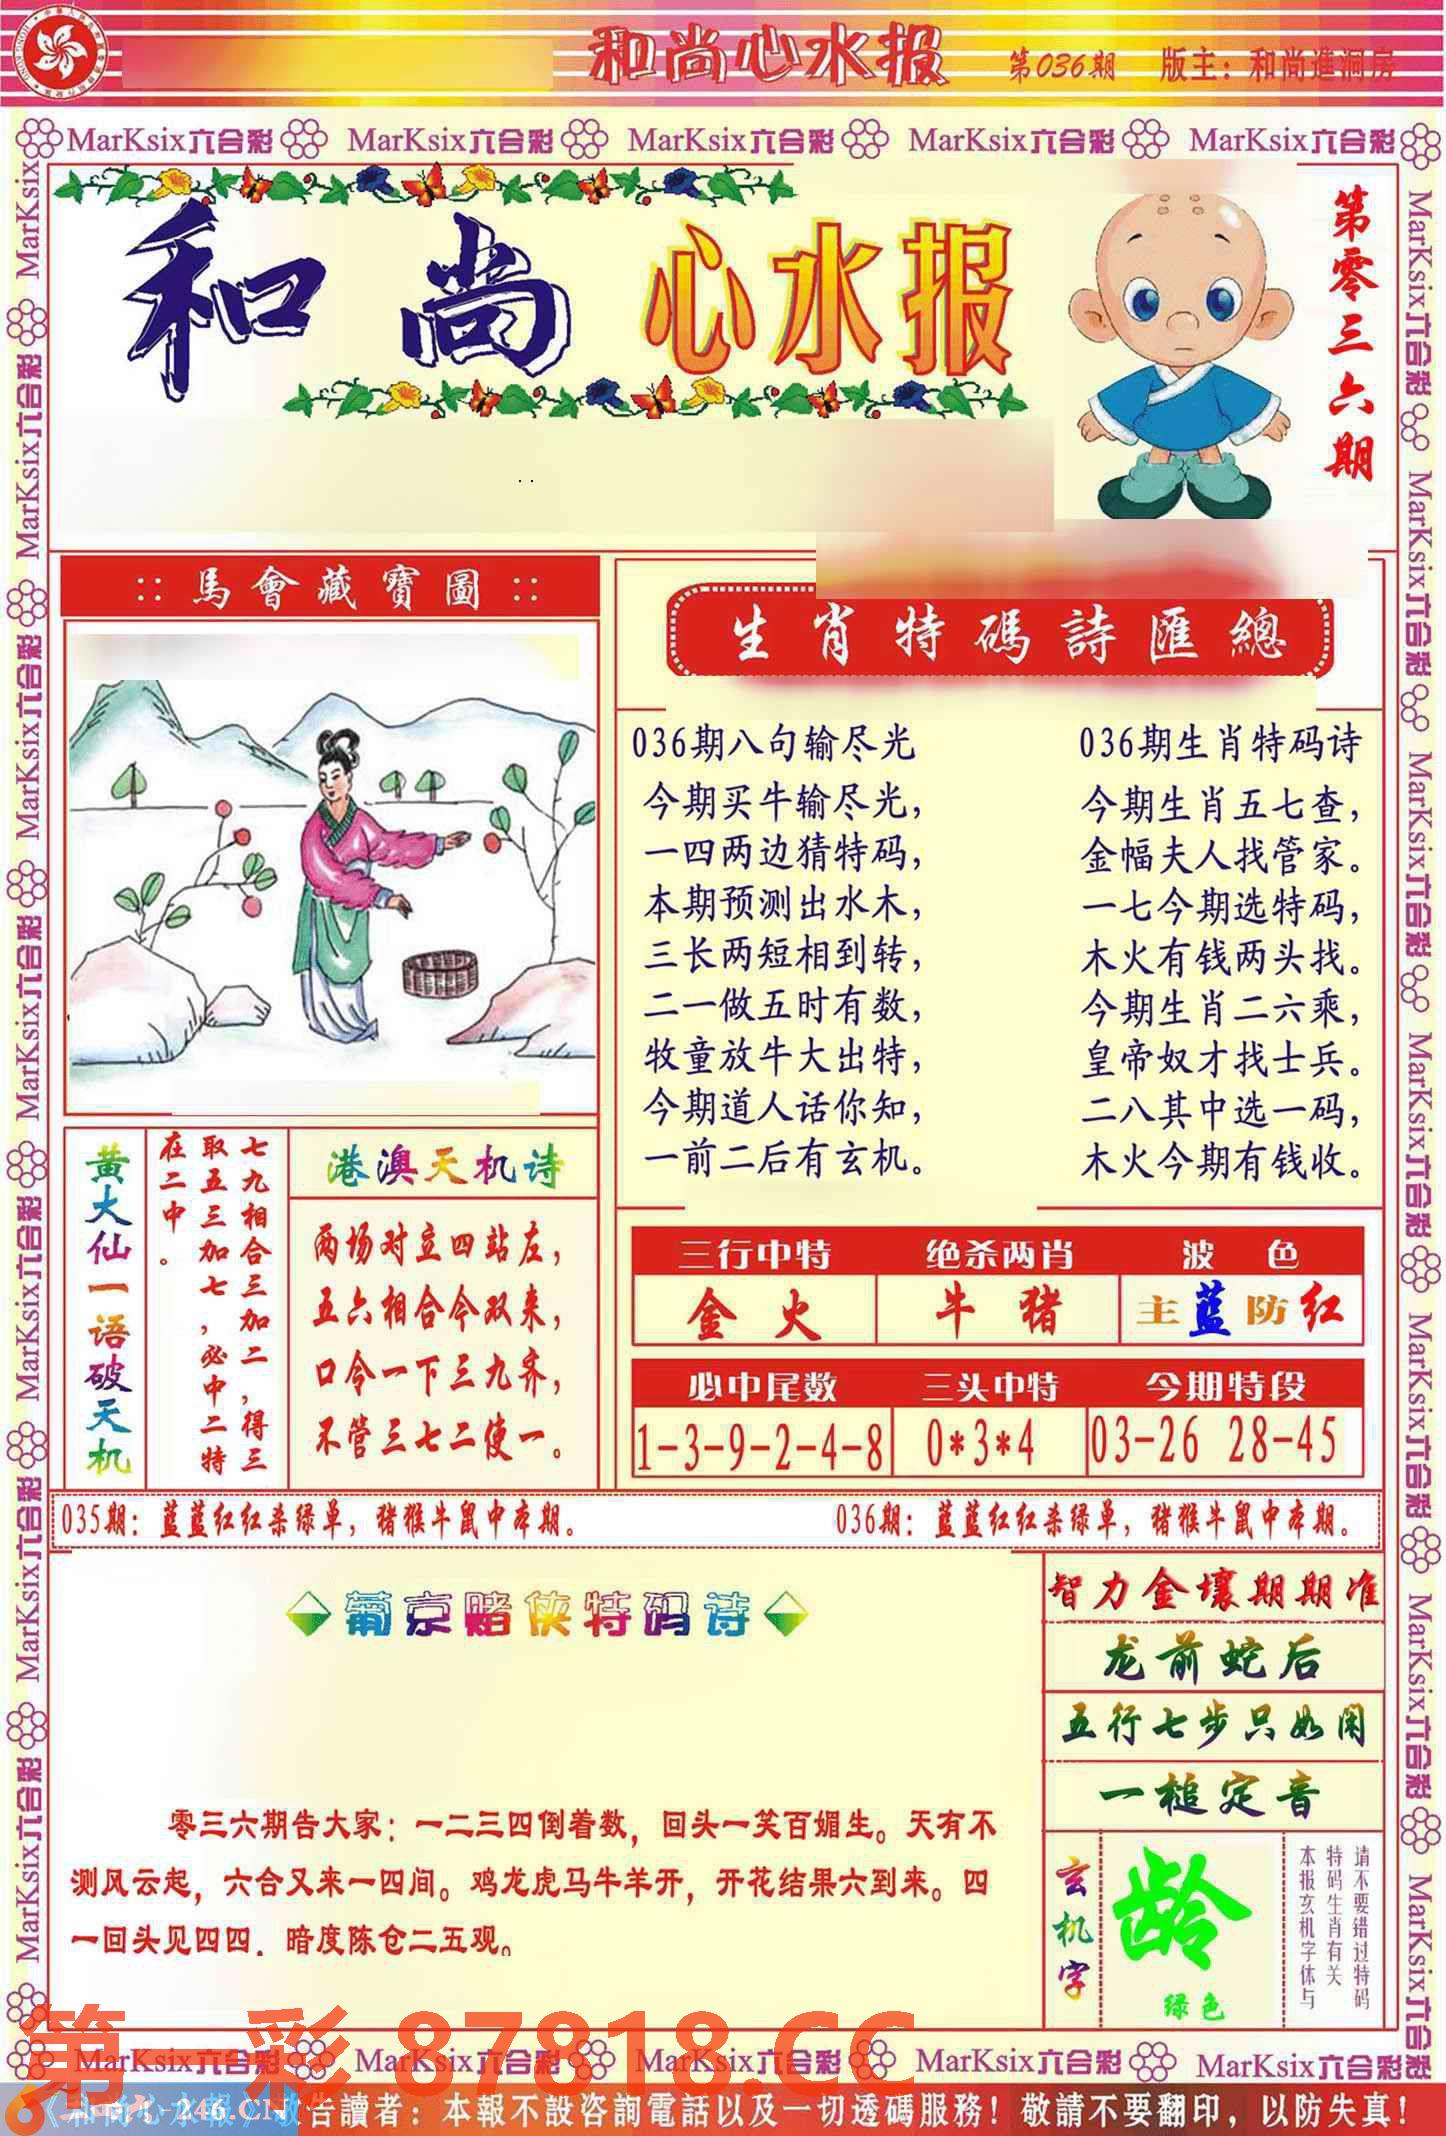 和尚心水报 第036期 版主：和尚進洞房
MarKsix六合彩 MarKsix六合彩 MarKsix六合彩 MarKsix六合彩 MarKsix六合彩
和尚 心水报
第零三六期
:: 馬會藏寶圖 ::
生肖特碼詩匯總
036期八句输尽光
今期买牛输尽光，
一四两边猜特码，
本期预测出水木，
三长两短相到转，
二一做五时有数，
牧童放牛大出特，
今期道人话你知，
一前二后有玄机。
036期生肖特码诗
今期生肖五七查，
金幅夫人找管家。
一七今期选特码，
木火有钱两头找。
今期生肖二六乘，
皇帝奴才找士兵。
二八其中选一码，
木火今期有钱收。
黄大仙一语破天机
七九相合三加二，得三
取五三加七，必中二特
在二中。
港澳天机诗
两场对立四站左，
五六相合今双来，
口令一下三九齐，
不管三七二使一。
三行中特 绝杀两肖 波色
金火 牛猪 主蓝防红
必中尾数 三头中特 今期特段
1-3-9-2-4-8 0*3*4 03-26 28-45
035期：蓝蓝红红杀绿单，猪猴牛鼠中本期。 036期：蓝蓝红红杀绿单，猪猴牛鼠中本期。
葡京赌侠特码诗
零三六期告大家：一二三四倒着数，回头一笑百媚生。天有不
测风云起，六合又来一四间。鸡龙虎马牛羊开，开花结果六到来。四
一回头见四四．暗度陈仓二五观。
智力金壤期期准
龙前蛇后
五行七步只如闲
一槌定音
玄机字
龄
绿色
请不要错过特码
特码生肖有关
本报玄机字体与
第一彩 87818.CC
MarKsix六合彩 MarKsix六合彩 MarKsix六合彩 MarKsix六合彩 MarKsix六合彩
告讀者：本報不設咨詢電話以及一切透碼服務！敬請不要翻印，以防失真！